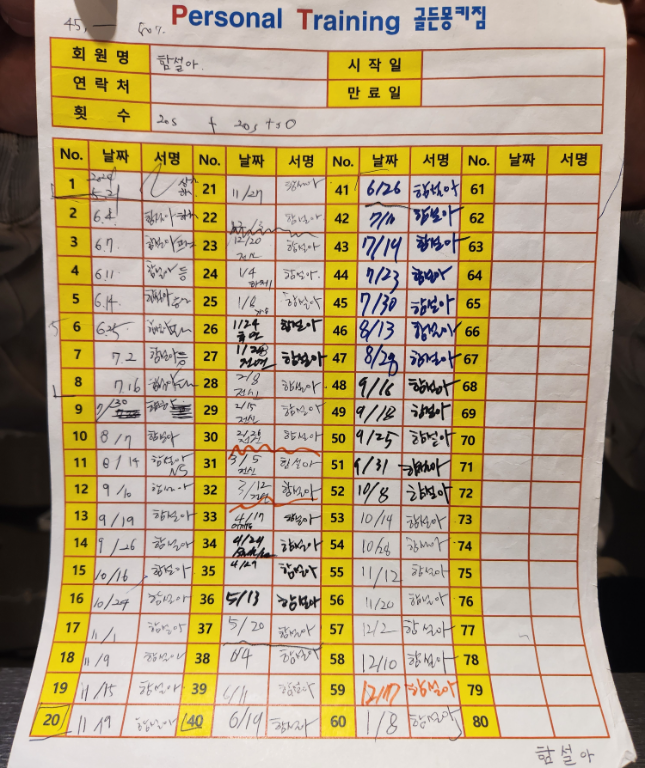 45, 50%
Personal Training 골든몽키짐
회원명 함설아 시작일
연락처 만료일
횟수 20s + 20s + 20
No. 날짜 서명 No. 날짜 서명 No. 날짜 서명 No. 날짜 서명
1 2024 5.21 21 11/27 함설아 41 6/26 함설아 61
2 6.4 함설아 22 함설아 42 7/11 함설아 62
3 6.7 함설아 23 12/20 함설아 43 7/19 함설아 63
4 6.11 함설아 등 24 1/4 함설아 44 7/23 함설아 64
5 6.14 함설아 25 1/8 함설아 45 7/30 함설아 65
6 6.25 함설아 26 1/24 함설아 46 8/13 함설아 66
7 7.2 함설아 등 27 1/28 함설아 47 8/28 함설아 67
8 7.16 함설아 28 2/8 전신 함설아 48 9/16 함설아 68
9 7/30 함설아 29 2/15 전신 함설아 49 9/18 함설아 69
10 8/7 함설아 30 전신 함설아 50 9/25 함설아 70
11 8/14 함설아 NS 31 3/5 전신 함설아 51 9/31 함설아 71
12 9/10 함설아 32 3/12 함설아 52 10/8 함설아 72
13 9/19 함설아 33 4/17 함설아 53 10/14 함설아 73
14 9/26 함설아 34 4/24 함설아 54 10/28 함설아 74
15 10/16 함설아 35 4/29 함설아 55 11/12 함설아 75
16 10/24 함설아 36 5/13 함설아 56 11/20 함설아 76
17 11/1 함설아 37 5/20 함설아 57 12/2 함설아 77
18 11/9 함설아 38 6/4 함설아 58 12/10 함설아 78
19 11/15 함설아 39 6/11 함설아 59 12/17 함설아 79
20 11/19 함설아 40 6/19 함설아 60 1/8 함설아 80
함설아